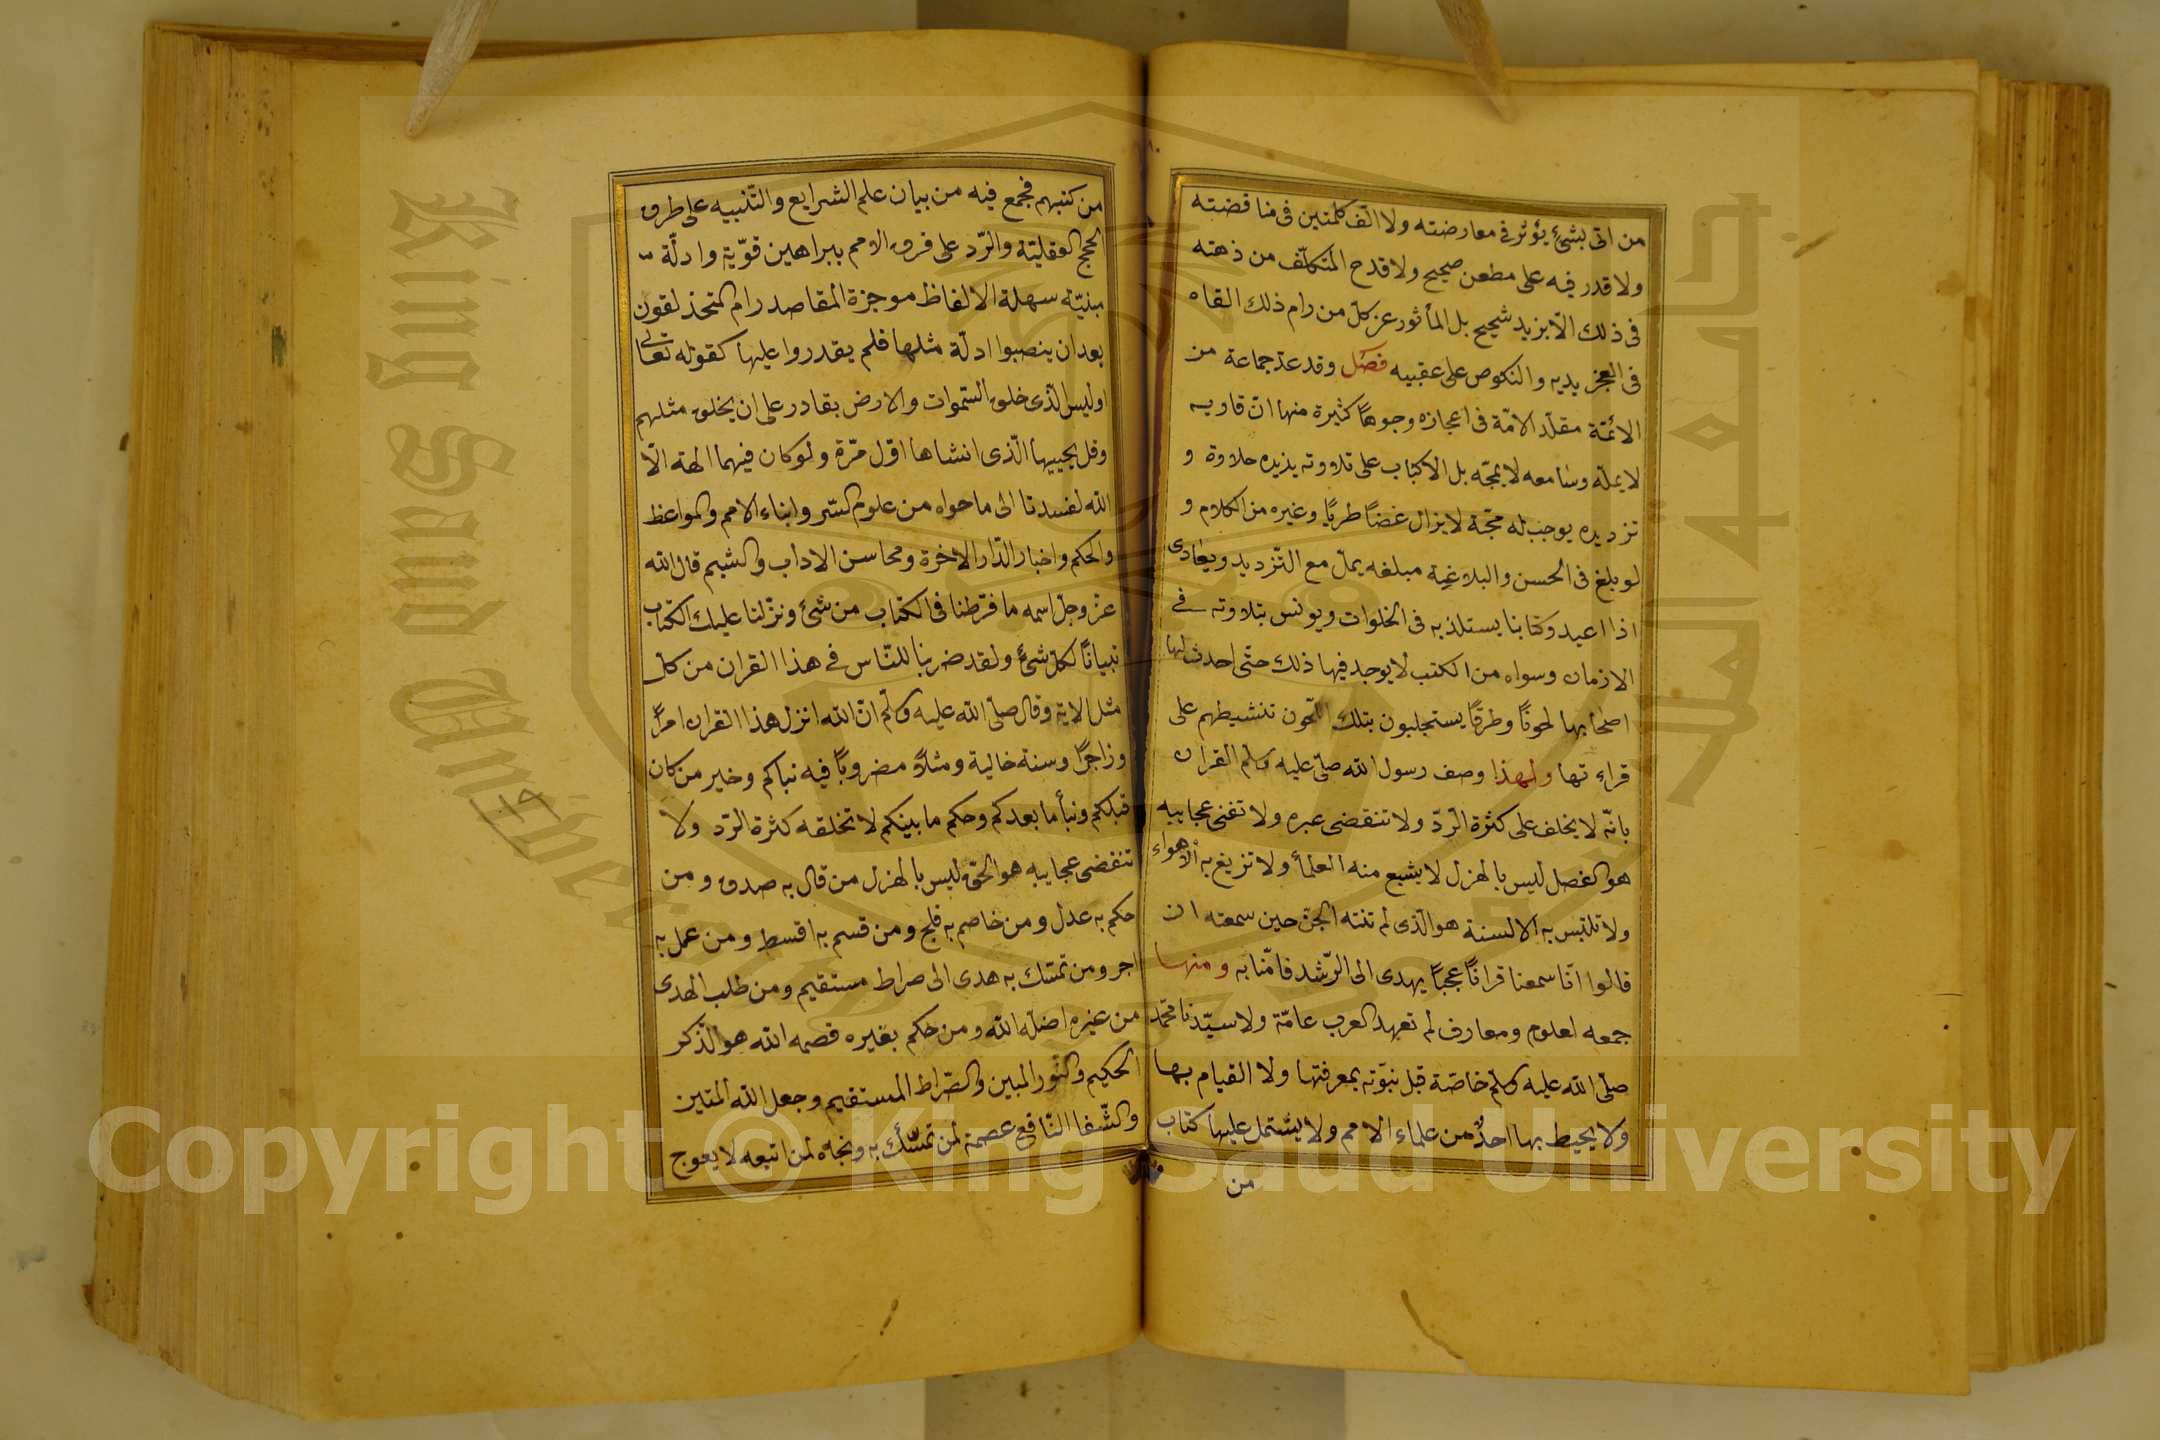 من اتى بشئ يؤثر فى معارضته ولا الّف كلمتين فى مناقضته
ولا قدر فيه على مطعن صحيح ولا قدح المتكلّف من ذهنه
فى ذلك الّا بزيد شحيح بل المأثور عن كلّ من رام ذلك القاه
فى العجز يديه والنكوص على عقبيه فصل وقد عدّ جماعة من
الائمّة مقلّد الامّة فى اعجازه وجوهاً كثيرة منها انّ قاريه
لا يملّه وسامعه لا يمجّه بل الاكباب على تلاوته يزيده حلاوة و
ترديده يوجب له محبّة لا يزال غضاً طريّا وغيره من الكلام و
لو بلغ فى الحسن والبلاغة مبلغه يملّ مع التّرديد ويعادى
اذا اعيد وكتابنا يستلذ به فى الخلوات ويونس بتلاوته فى
الازمان وسواه من الكتب لا يوجد فيها ذلك حتّى احدث لها
اصحابها لحونًا وطرقًا يستجلبون بتلك اللّحون تنشيطهم على
قراءتها ولهذا وصف رسول الله صلّى عليه وسلّم القران
بانّه لا يخلف على كثرة الردّ ولا تنقضى عبره ولا تفنى عجايبه
هو الفصل ليس بالهزل لا يشبع منه العلمأ ولا تزيغ به الاهواء
ولا تلتبس به الالسنة هو الّذى لم تنته الجنّ حين سمعته ان
قالوا انّا سمعنا قرانًا عجبًا يهدى الى الرّشد فامّنا به ومنها
جمعه لعلوم ومعارف لم تعهد العرب عامّة ولا سيّدنا محمّد
صلّى الله عليه وسلّم خاصّة قبل نبوّته بمعرفتها ولا القيام بها
ولا يحيط بها احدٌ من علماء الامم ولا يشتمل عليها كتاب
من
من كتبهم فجمع فيه من بيان علم الشرايع والتّنبيه على طرق
الحجج العقليّة والرّد على فرق الامم ببراهين قوّية وادلّة
بينيّة سهلة الالفاظ موجزة المقاصد رام المتحذلقون
بعد ان ينصبوا ادلّة مثلها فلم يقدروا عليها كقوله تعالى
اوليس الّذى خلق السّموات والارض بقادر على ان يخلق مثلهم
وقل يحييها الّذى انشاها اوّل مرّة ولو كان فيهما الهة الّا
الله لفسدتا الى ما حواه من علوم السّير وانباء الامم والمواعظ
والحكم واخبار الدّار الاخرة ومحاسن الاداب والشيم قال الله
عزّ وجلّ اسمه ما فرّطنا فى الكتاب من شئ ونزّلنا عليك الكتاب
تبيانًا لكلّ شئ ولقد ضربنا للنّاس فى هذا القران من كلّ
مثل الاية وقال صلّى الله عليه وسلّم انّ الله انزل هذا القران امرًا
وزاجرًا وسنة خالية ومثلاً مضروبًا فيه نباكم وخير من كان
قبلكم ونبأ ما بعدكم وحكم ما بينكم لا تخلقه كثرة الرّد ولا
تنقضى عجايبه هو الحقّ ليس بالهزل من قال به صدق ومن
حكم به عدل ومن خاصم به فلج ومن قسم به اقسط ومن عمل به
اجر ومن تمسّك به هدى الى صراط مستقيم ومن طلب الهدى
من غيره اضلّه الله ومن حكم بغيره قصمه الله هو الذّكر
الحكيم والنّور المبين والصّراط المستقيم وجعل الله المتين
والشّفا النّافع عصمة لمن تمسّك به ونجاه لمن اتبعه لا يعوج
King Saud University
جامعة الملك
Copyright © King Saud University